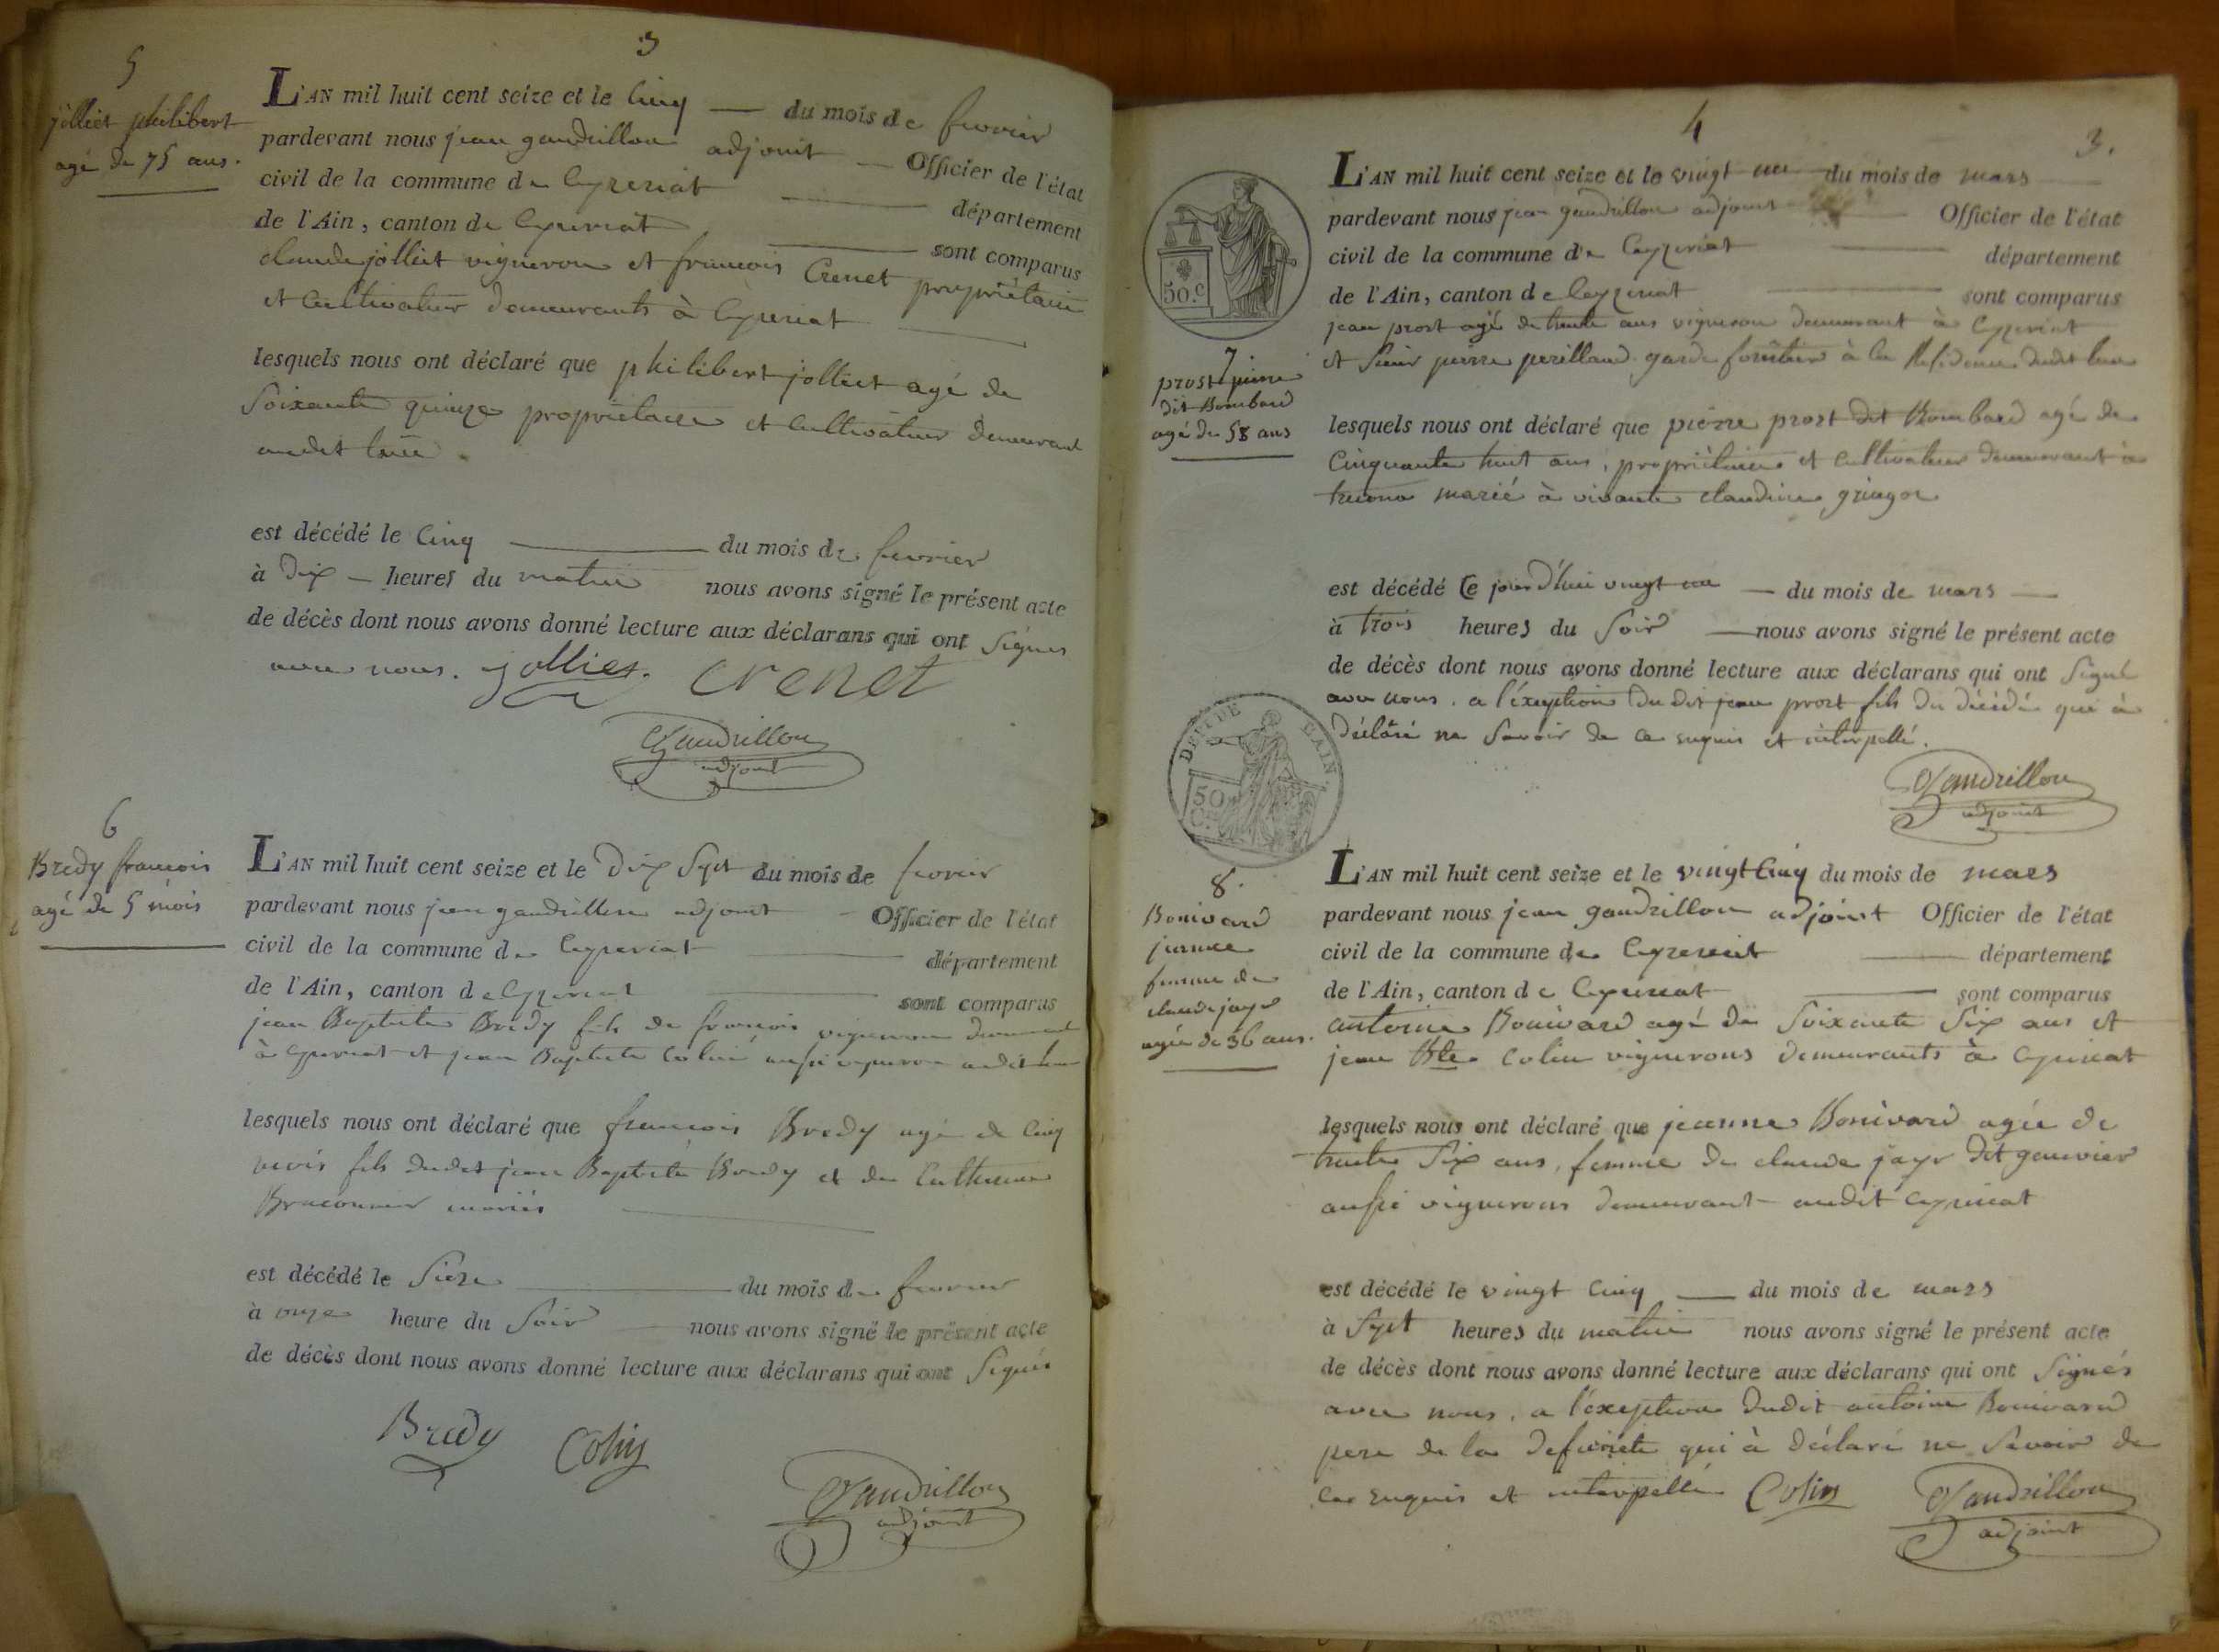 3
5
jolliet philibert
agé de 75 ans.
L'AN mil huit cent seize et le Cinq du mois de fevrier
pardevant nous jean gandrillon adjoint Officier de l'état
civil de la commune de Ceyzeriat département
de l'Ain, canton de Ceyzeriat sont comparus
claude jolliet vigneron et francois Crenet propriétaire
et Cultivateur demeurants à Ceyzeriat
lesquels nous ont déclaré que philibert jolliet agé de
Soixante quinze propriétaire et Cultivateur demeurant
audit lieu
est décédé le Cinq du mois de fevrier
à Dix heures du matin nous avons signé le présent acte
de décès dont nous avons donné lecture aux déclarans qui ont Signés
avec nous. jolliet. crenet
Gandrillon
adjoint
6
Bredy francois
agé de 5 mois
L'AN mil huit cent seize et le Dix Sept du mois de fevrier
pardevant nous jean gandrillon adjoint Officier de l'état
civil de la commune de Ceyzeriat département
de l'Ain, canton de Ceyzeriat sont comparus
jean Baptiste Bredy fils de francois vigneron demeurant
à Ceyzeriat et jean Baptiste Colin aussi vigneron audit lieu
lesquels nous ont déclaré que francois Bredy agé de Cinq
mois fils dudit jean Baptiste Bredy et de Catherine
Braconnier mariés
est décédé le Sieze du mois de fevrier
à onze heure du Soir nous avons signé le présent acte
de décès dont nous avons donné lecture aux déclarans qui ont Signés
Bredy Colin
Gandrillon
adjoint
4
3.
50.c
L'AN mil huit cent seize et le vingt un du mois de mars
pardevant nous jean gandrillon adjoint Officier de l'état
civil de la commune de Ceyzeriat département
de l'Ain, canton de Ceyzeriat sont comparus
jean prost agé de trente ans vigneron demeurant à Ceyzeriat
et Sieur pierre perillaud garde forêtier à la Résidence dudit lieu
7
prost pierre
dit Bombard
agé de 58 ans
lesquels nous ont déclaré que piérre prost dit Bombard agé de
Cinquante huit ans, propriétaire et Cultivateur demeurant à
marié à vivante claudine gringoz
est décédé Ce jourd'hui vingt un du mois de mars
à trois heures du Soir nous avons signé le présent acte
de décès dont nous avons donné lecture aux déclarans qui ont Signé
avec nous. a l'éxeption du dit jean prost fils du décédé qui à
Déclaré ne Savoir de ce enquis et interpellé.
Gandrillon
adjoint
DEP. DE L'AIN.
50
C.
8.
Bonivard
jeanne
femme de
claude jayr
agée de 36 ans.
L'AN mil huit cent seize et le vingt Cinq du mois de mars
pardevant nous jean gandrillon adjoint Officier de l'état
civil de la commune de Ceyzeriat département
de l'Ain, canton de Ceyzeriat sont comparus
antoine Bonivard agé de Soixante Six ans et
jean Bte Colin vignerons demeurants à Ceyzeriat
lesquels nous ont déclaré que jeanne Bonivard agée de
trente Six ans, femme de claude jayr dit gauvier
aussi vignerons demeurant audit Ceyzeriat
est décédé le vingt Cinq du mois de mars
à Sept heures du matin nous avons signé le présent acte
de décès dont nous avons donné lecture aux déclarans qui ont Signés
avec nous, a l'éxeption dudit antoine Bonivard
pere de la defunte qui à déclaré ne Savoir de
Ce enquis et interpellé Colin Gandrillon
adjoint